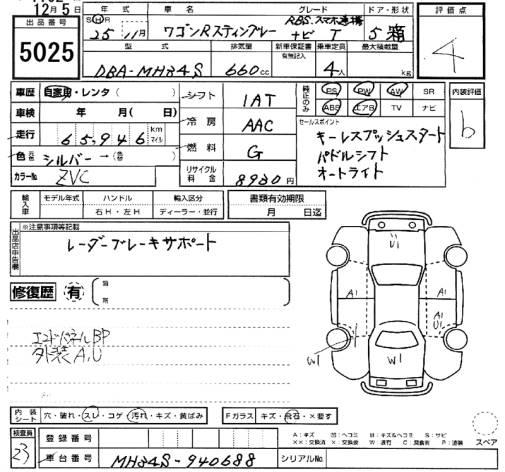 12月5日
出品番号
5025
年式
車名
グレード
ドア・形状
SHR
25年11月
ワゴンRスティングレー
RBS.スマホ連携
ナビ T
5 箱
型式
排気量
新車保証書
有無記入
乗車定員
最大積載量
DBA-MH34S
660cc
4人
kg
評価点
4
車歴 自家用・レンタ( )
車検 年 月( 日)
走行 65,946 km マイル
色 シルバー → ( )
カラーNo. ZVC
シフト 1AT
冷房 AAC
燃料 G
リサイクル料金 8980円
純正のみ
PS PW AW SR
ABS エアB TV ナビ
セールスポイント
キーレスプッシュスタート
パドルシフト
オートライト
内装評価
b
輸入車
モデル年式 ハンドル 輸入区分
右H・左H ディーラー・並行
書類有効期限
月 日迄
出品店申告欄
※注意事項等記載
レーダーブレーキサポート
修復歴 有
エンドパネルBP
外装A,U
U1
A1
A1
U1
W1
W1
内装シート 穴・破れ・スレ・コゲ・汚れ・キズ・黄ばみ
Fガラス キズ・飛石・×要す
スペア
検査員
23
登録番号
車台番号 MH34S-940688
シリアルNo.
A:キズ U:ヘコミ B:キズ&ヘコミ S:サビ
XX:交換済 X:交換要 W:補修 C:腐食 P:塗装